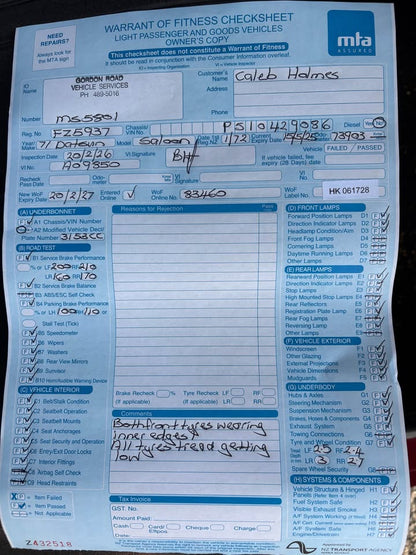 NEED REPAIRS?
Always look for the MTA sign
WARRANT OF FITNESS CHECKSHEET
LIGHT PASSENGER AND GOODS VEHICLES
OWNER'S COPY
This checksheet does not constitute a Warrant of Fitness
It should be read in conjunction with the Consumer Information overleaf.
mta
ASSURED
IO = Inspecting Organisation
VI = Vehicle Inspector
IO Name
GORDON ROAD
VEHICLE SERVICES
PH 489-5016
Customer's Name Caleb Holmes
Address
Phone
IO Number
Reg. No. FZ5937
Chassis/VIN No. P510429086
Diesel Yes No
Year 71 Datsun Model Saloon Date 1st Reg NZ 1/72
Inspection Date 20/2/26
VI Signature
If vehicle failed, fee expiry (28 Days) date
Vehicle FAILED / PASSED
VI No. A09850
Recheck Pass Date
Odometer
VI Signature
New WoF Expiry Date 20/2/27
Entered Online
WoF Online No. 83460
WoF Label No. HK 061728
(A) UNDERBONNET
A1 Chassis/VIN Number
A2 Modified Vehicle Decl
Plate Number 3153CC
(B) ROAD TEST
B1 Service Brake Performance
% or LF 200 RF 210
LR 160 RR 170
B2 Service Brake Balance
B3 ABS/ESC Self Check
B4 Parking Brake Performance
% or LH 100 RH 110 or
Stall Test (Tick)
B5 Speedometer
B6 Wipers
B7 Washers
B8 Rear View Mirrors
B9 Sunvisor
B10 Horn/Audible Warning Device
(C) VEHICLE INTERIOR
C1 Belt/Stalk Condition
C2 Seatbelt Operation
C3 Seatbelt Mounts
C4 Seat Anchorages
C5 Seat Security and Operation
C6 Entry/Exit Door Locks
C7 Interior Fittings
C8 Airbag Self Check
C9 Head Restraints
= Item Failed
= Item Passed
= Not Applicable
Z432518
Reasons for Rejection
Pass
Brake Recheck % (if applicable)
Tyre Recheck (if applicable) LF RF
LR RR
Comments
Both front tyres wearing
inner edges
All tyres tread getting
low
Tax Invoice
GST. No.
Amount Paid
Cash Card/Eftpos Cheque Charge
Signed
(D) FRONT LAMPS
Forward Position Lamps D1
Direction Indicator Lamps D2
Headlamp Condition/Aim D3
Front Fog Lamps D4
Cornering Lamps D5
Daytime Running Lamps D6
Other Lamps D7
(E) REAR LAMPS
Rearward Position Lamps E1
Direction Indicator Lamps E2
Stop Lamps E3
High Mounted Stop Lamps E4
Rear Reflectors E5
Registration Plate Lamp E6
Rear Fog Lamps E7
Reversing Lamp E8
Other Lamps E9
(F) VEHICLE EXTERIOR
Windscreen F1
Other Glazing F2
External Projections F3
Vehicle Dimensions F4
Mudguards F5
(G) UNDERBODY
Hubs & Axles G1
Steering Mechanism G2
Suspension Mechanism G3
Brakes, Hoses & Components G4
Exhaust System G5
Towing Connections G6
Tyre and Wheel Condition G7
Tread Depth in mm LF 25 RF 2.4
LR 3 RR 27
Spare Wheel Security G8
(H) SYSTEMS & COMPONENTS
Vehicle Structure & Hinged Panels (Refer Item 4 over) H1
Fuel System Safe H2
Visible Exhaust Smoke H3
Engine/Drivetrain
Approved by
NZ TRANSPORT AGENCY